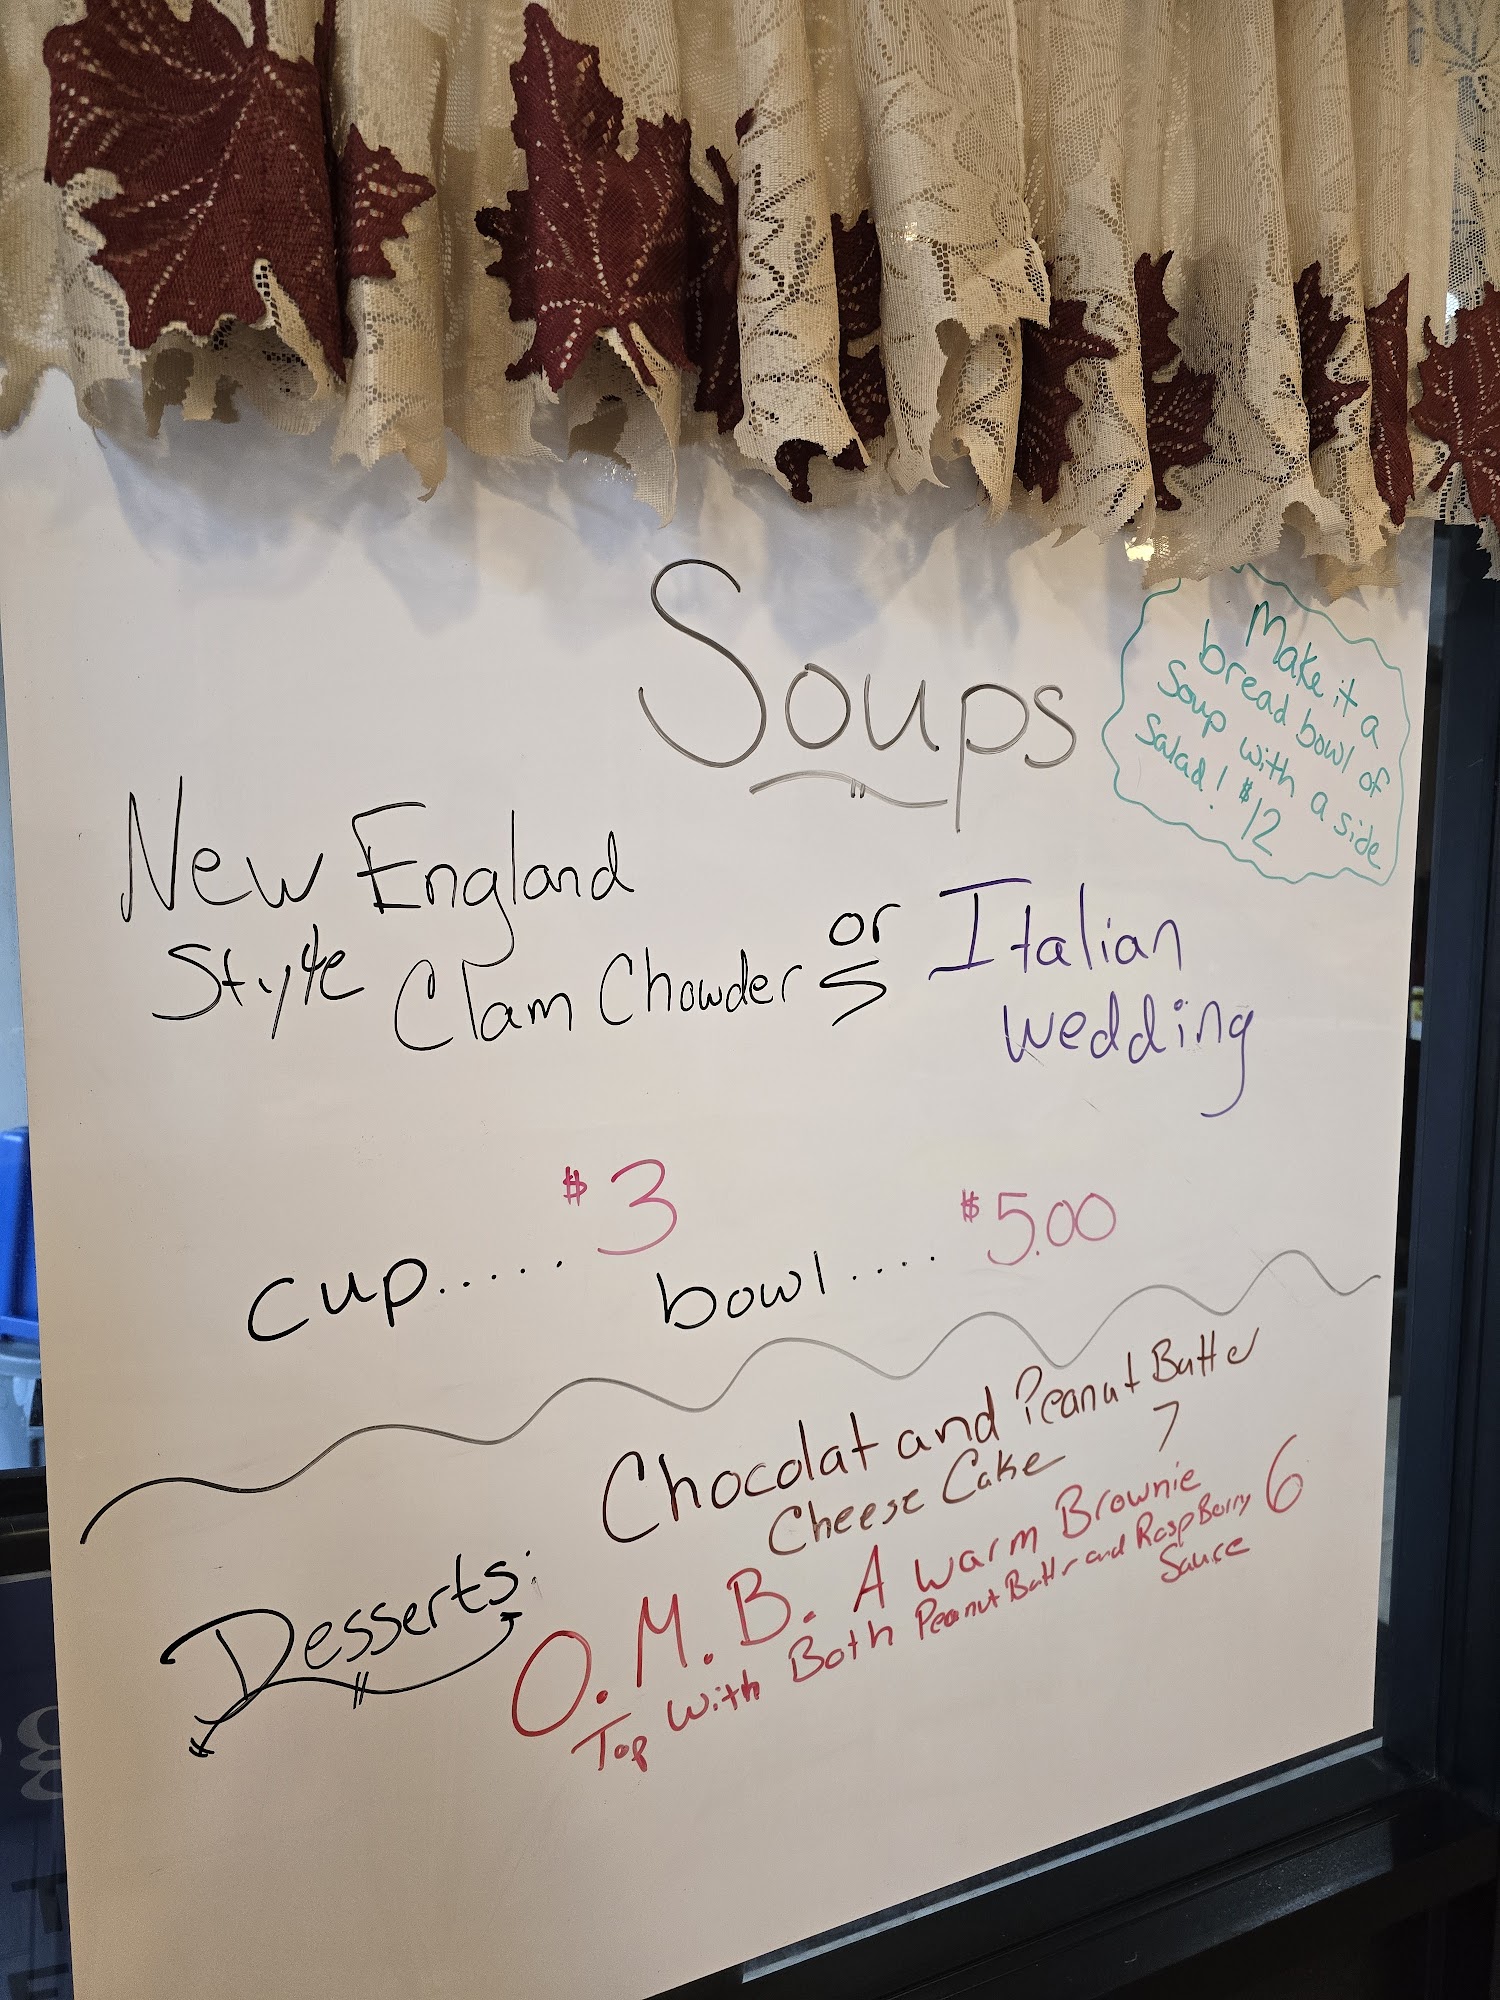 Soups
Make it a
bread bowl of
Soup with a side
Salad! $12
New England
Style Clam Chowder
or
Italian
wedding
cup..... $3
bowl.... $5.00
Desserts:
Chocolat and Peanut Butter
Cheese Cake 7
O.M.B. A warm Brownie 6
Top with Both Peanut Buttr and RaspBerry
Sauce